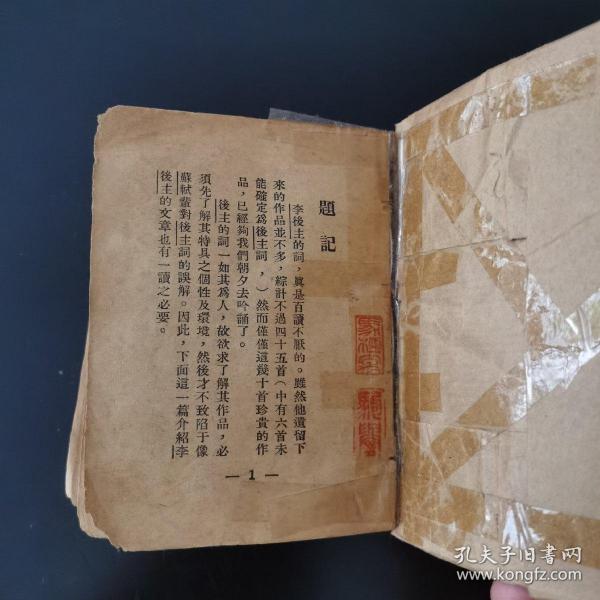 題記
李後主的詞，眞是百讀不厭的。雖然他遺留下
來的作品並不多，綜計不過四十五首（中有六首未
能確定爲後主詞，）然而僅僅這幾十首珍貴的作
品，已經夠我們朝夕去吟誦了。
後主的詞一如其爲人，故欲求了解其作品，必
須先了解其特具之個性及環境，然後才不致陷于像
蘇軾輩對後主詞的誤解。因此，下面這一篇介紹李
後主的文章也有一讀之必要。
— 1 —
孔夫子旧書网
www.kongfz.com